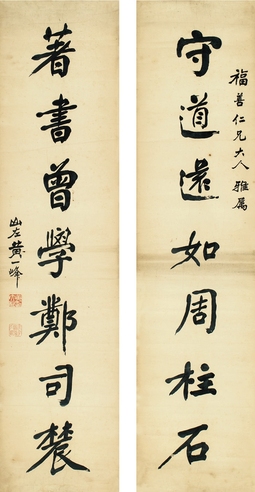 福善仁兄大人雅属
守道还如周柱石
著書曾學鄭司農
山左黄一峰